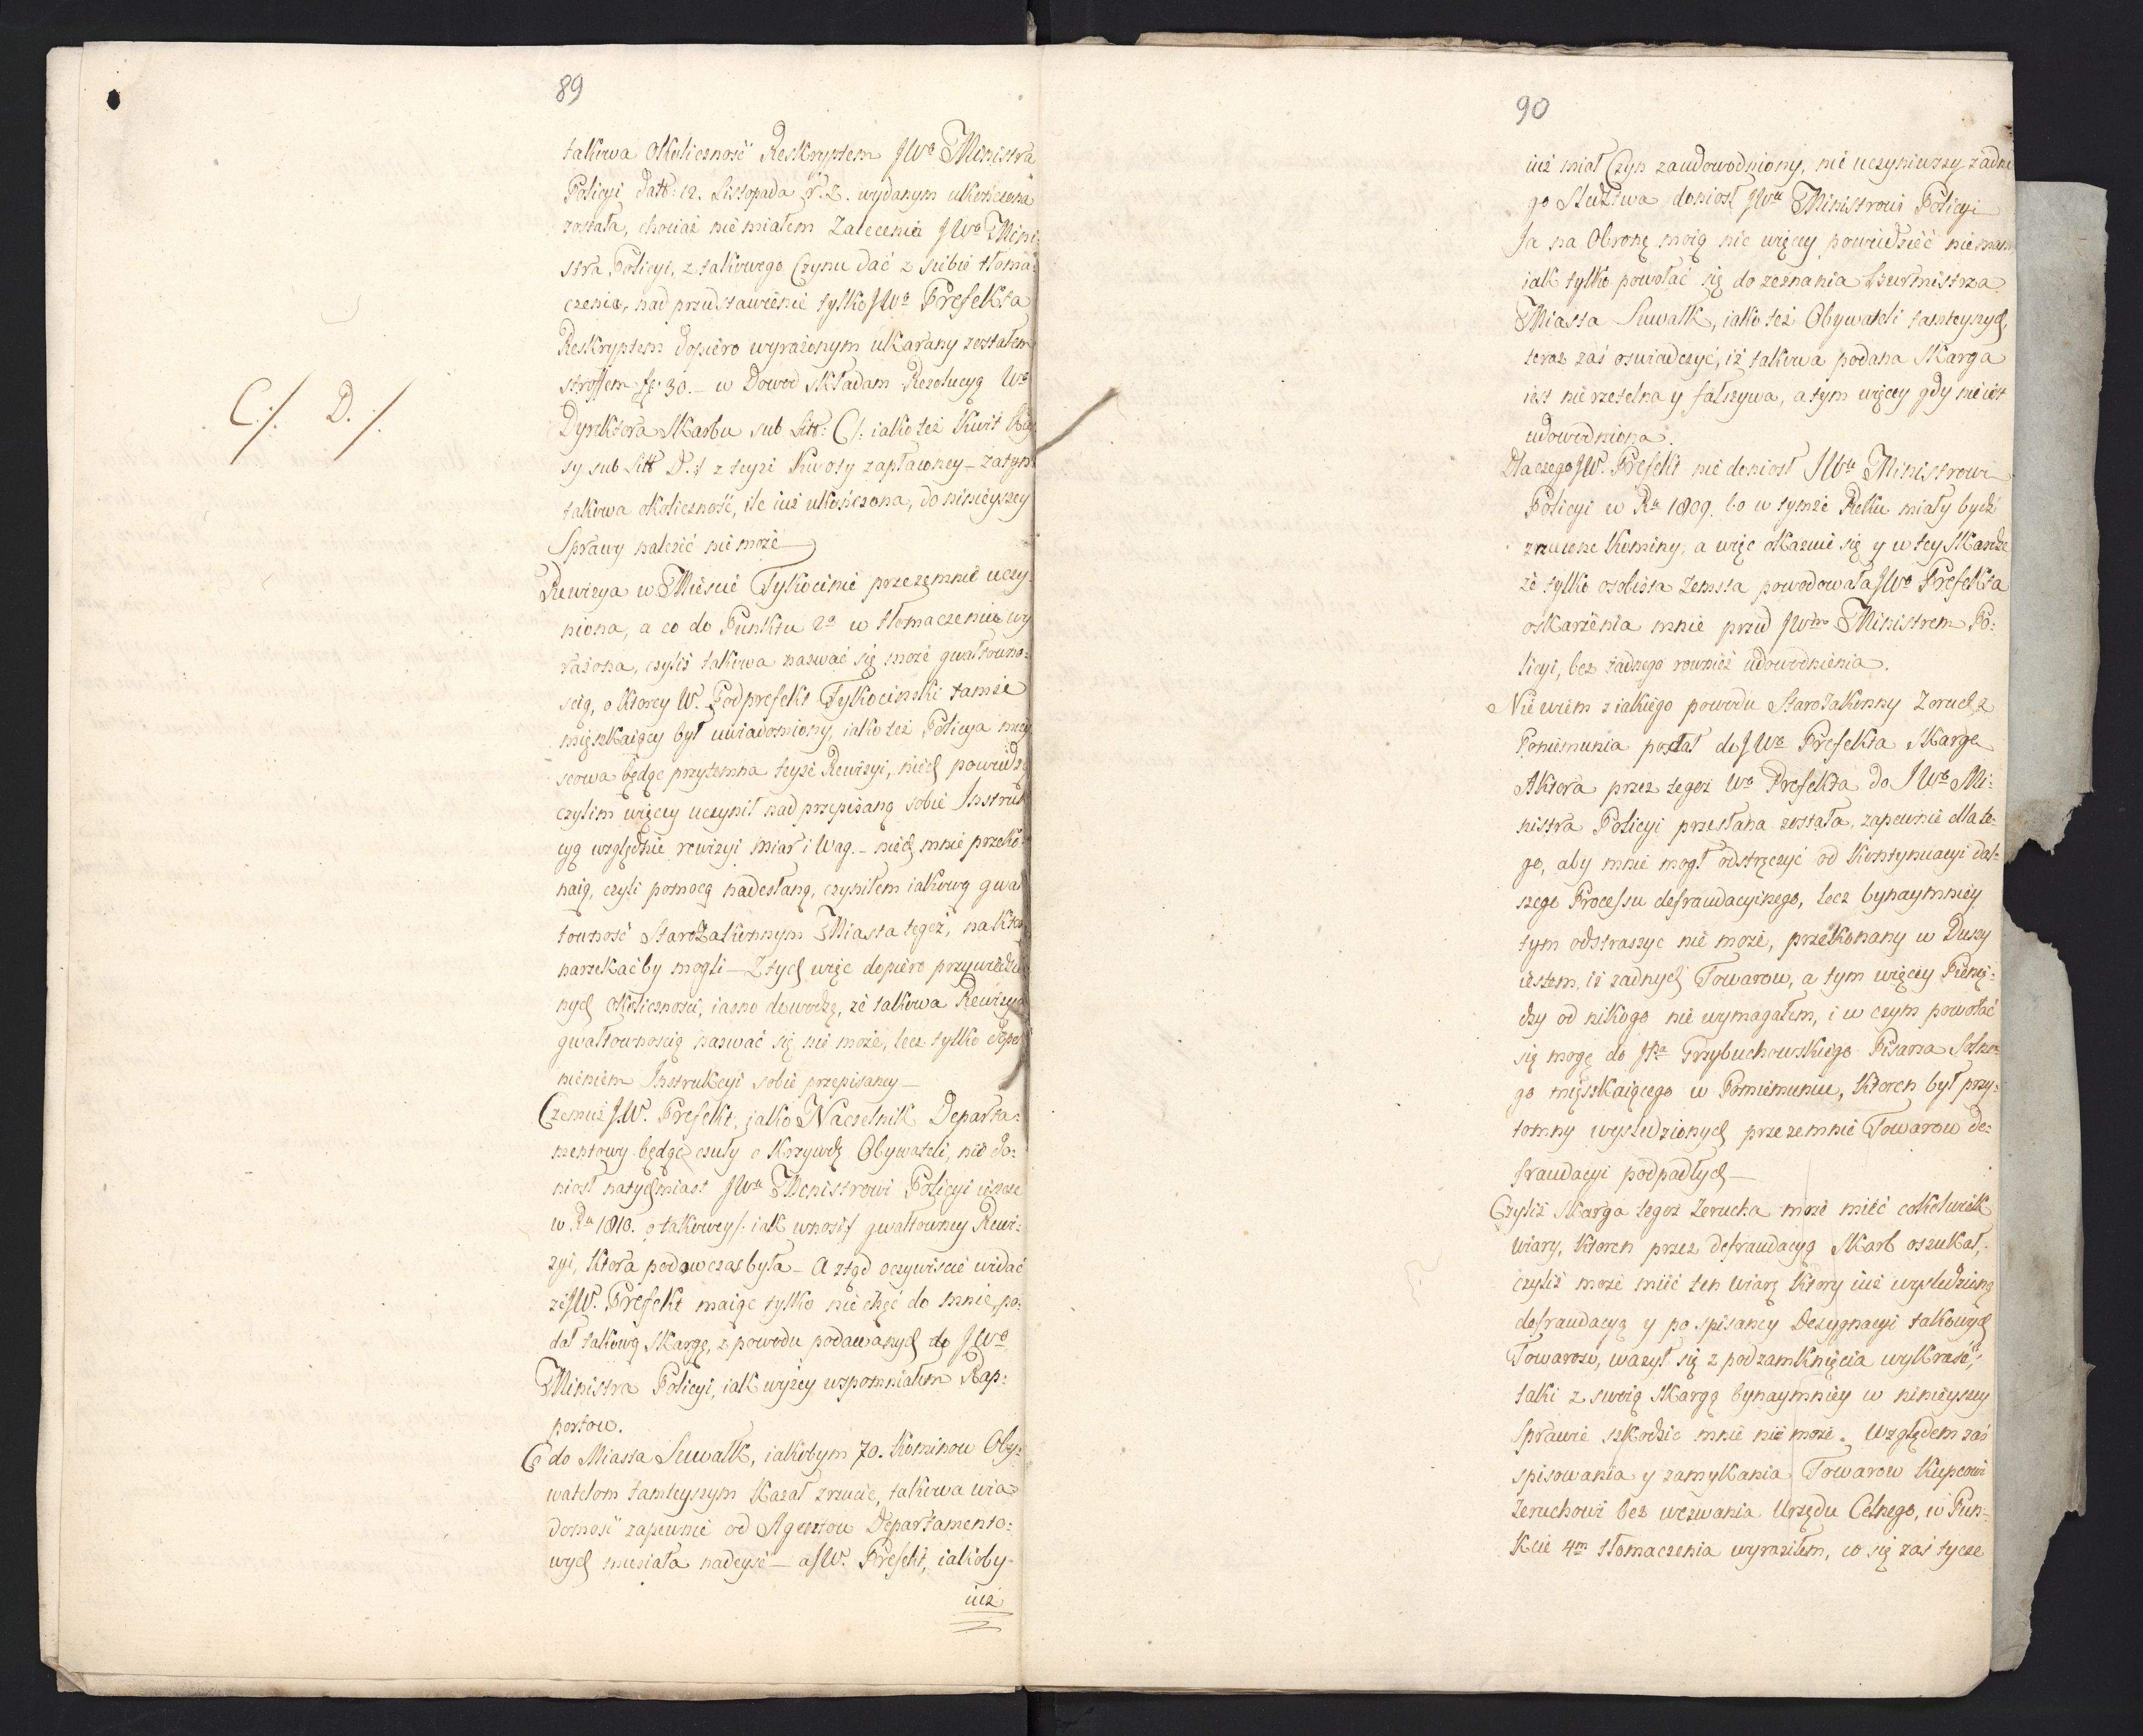 89
takowa Okoliczność Reskryptem JWo Ministra
Policyi datt: 12. Listopada r. z. wydanym ukończona
została, chociaż nie miałem Zalecenia JWo Mini:
stra Policyi, z takowego Czynu dać z siebie tłoma:
czenia, nad przedstawienie tylko JWo Prefekta
Reskryptem dopiero wyrażonym ukarany zostałem
stroffem fp. 30. – w Dowod składam Rezolucyą Wo
C./. D./.
Dyrektora Skarbu sub Litt: C/. iako też Kwit Kas
sy sub Litt D./ z teyże Kwoty zapłaconey – zatym
takowa okoliczność, ile iuż ukończona, do ninieyszey
Sprawy należeć nie może
Rewizya w Mieście Tykocinie przezemnie uczy:
niona, a co do Punktu 2o w tłomaczeniu wy
rażona, czyliż takowa nazwać się może gwałtowno:
ścią, o ktorey W. Podprefekt Tykocinski tamże
mięszkaiący był uwiadomiony, iako też Policya miey
scowa będąc przytomna teyże Rewizyi, niech powiedzą
czylim więcey uczynił nad przepisaną sobie Instruk
cyą względnie rewizyi miar i Wag. – niech mnie przeko
naią, czyli pomocą nadesłaną, czyniłem iakową gwał
towność Starozakonnym Miasta tegoż, na któ
narzekać by mogli – Z tych więc dopiero przywiedzio
nych Okoliczności, iasno dowodzę, że takowa Rewizya
gwałtownością nazwać się nie może, lecz tylko dope
nieniem Instrukcyi sobie przepisaney –
Czemuż J.W. Prefekt, iako Naczelnik Departa:
mentowy będąc czuły o Krzywdę Obywateli, nie do:
niosł natychmiast JWu Ministrowi Policyi ieszcze
w Ru 1810. o takowey /: iak wnosi:/ gwałtowney Rewi:
zyi, ktora podowczas była – A ztąd oczywiście widać
że JW. Prefekt maiąc tylko nie chęć do mnie, po:
dał takową Skargę, z powodu podawanych do JWo
Ministra Policyi, iak wyżey wspomniałem Rap:
portow.
Co do Miasta Suwałk, iakobym 70. Kominow Oby:
watelom tamteyszym Kazał zrzucić, takowa wia:
domość zapewnie od Agentow Departamento:
wych musiała nadeyść – a JW. Prefekt, iakoby
iuż
90
iuż miał Czyn zaudowodniony, nie uczyniwszy żadne
go Sledztwa doniosł JWu Ministrowi Policyi
Ja na Obronę moią nic więcey powiedzieć nie mam
iak tylko powołać się do zeznania Burmistrza
Miasta Suwałk, iako też Obywateli tamteyszych,
teraz zaś oswiadczyć, iż takowa podana Skarga
iest nierzetelna y fałszywa, a tym więcey gdy nie iest
udowodniona.
Dla czego JW. Prefekt nie doniosł JWu Ministrowi
Policyi w Ru 1809. bo w tymże Roku miały bydź
zrzucone Kominy, a więc okazuie się y w tey Skardze
że tylko osobista Zemsta powodowała JWo Prefekta
oskarżenia mnie przed JWm Ministrem Po:
licyi, bez żadnego rownież udowodnienia.
Nie wiem z iakiego powodu Starozakonny Zoruch z
Poniemunia posłał do JWo Prefekta Skargę
Aktora przez tegoż Wo Prefekta do JWo Mi:
nistra Policyi przesłana została, zapewnie dla te:
go, aby mnie mogł odstręczyć od Kontynuacyi dal:
szego Processu defraudacyinego, lecz bynaymniey
tym odstraszyc nie może, przekonany w Duszy
iestem, iż żadnych Towarow, a tym więcey Pienię:
dzy od nikogo nie wymagałem, i w czym powołać
się mogę do JPa Trzybuchowskiego Pisarza Solne
go mięszkaiącego w Poniemuniu, ktoren był przy:
tomny wysledzionych przezemnie Towarow de:
fraudacyi podpadłych –
Czyliż Skarga tegoż Zerucha może mieć cokolwiek
wiary, ktoren przez defraudacyą Skarb oszukał,
czyliż może mieć ten wiarę ktory iuż wysledzioną
defraudacyą y po spisaney Dezygnacyi takowych
Towarow, ważył się z pod zamknięcia wykraść,
taki z swoią Skargą bynaymniey w ninieyszey
sprawie szkodzic mnie nie może. Względem zaś
spisowania y zamykania Towarow Kupcowi
Zeruchowi bez wezwania Urzędu Celnego, w Pun:
kcie 4m tłomaczenia wyraziłem, co się zaś tycze